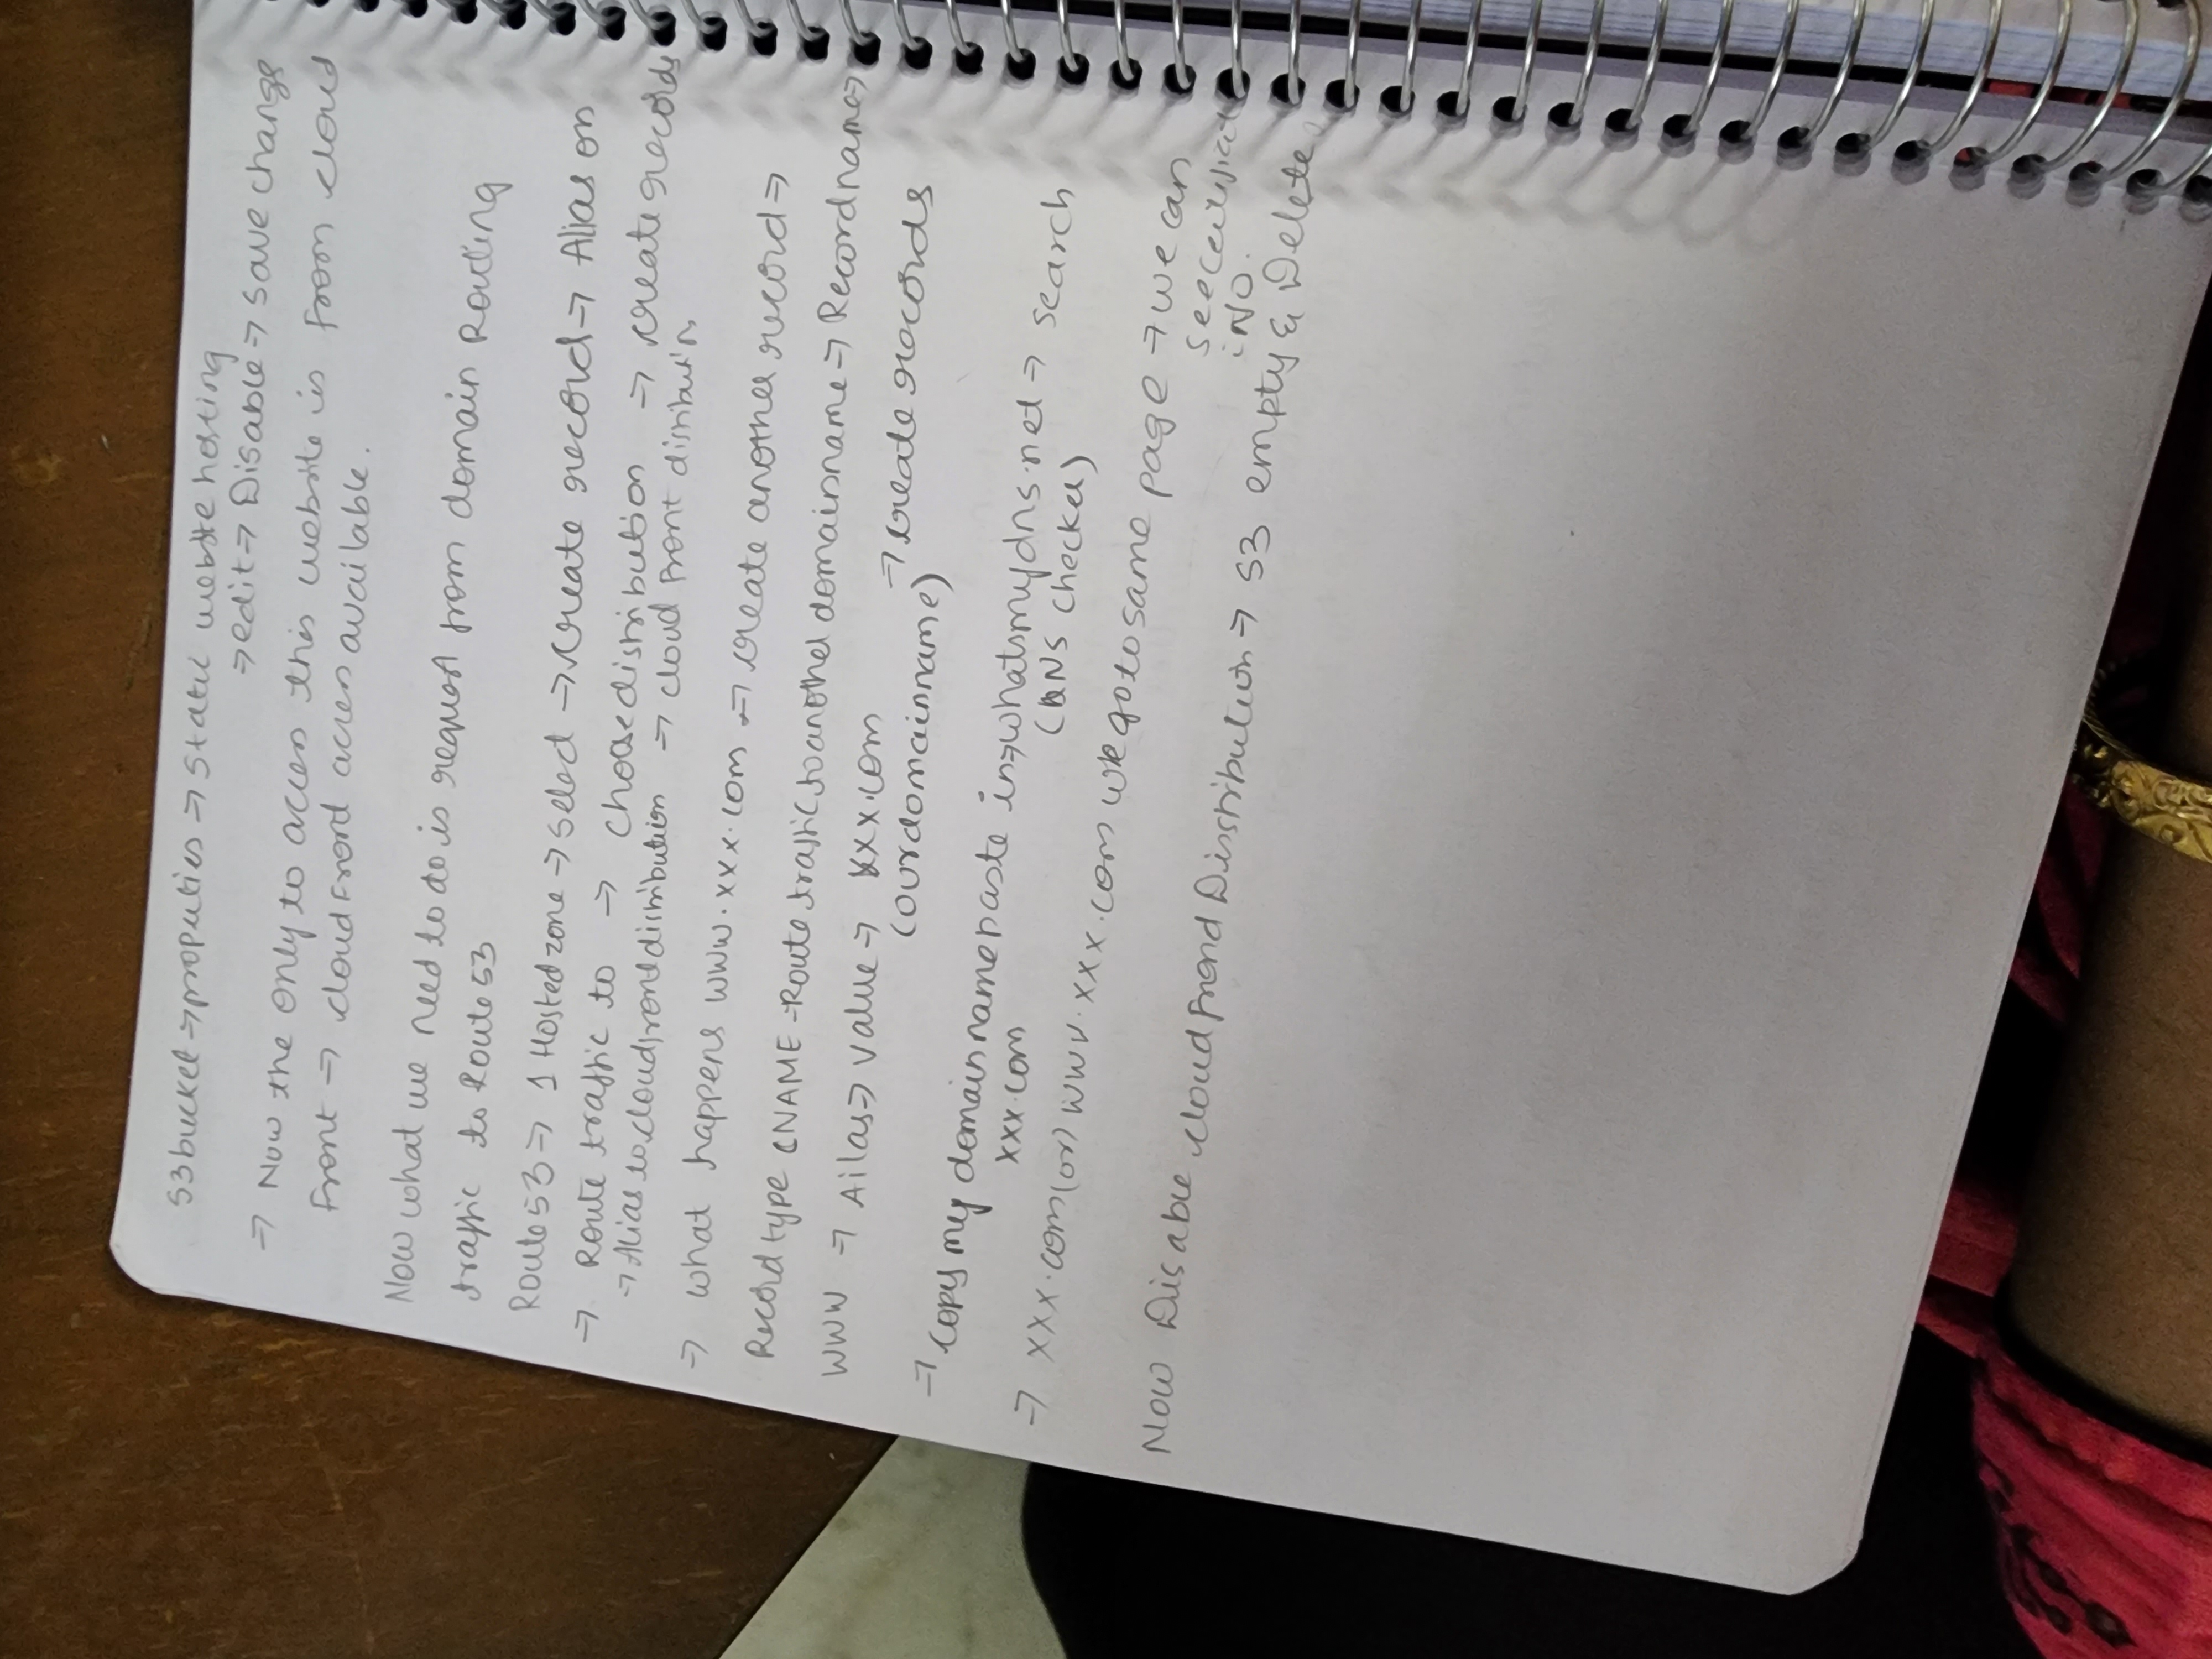 S3 bucket → properties → Static website hosting
→ edit → Disable → Save change
→ Now the only to access this website is from cloud
Front → cloudFrond access available.
Now what we need to do is request from domain Routing
traffic to Route 53
Route 53 → 1 Hosted zone → select → create record → Alias on
→ Route traffic to → choose distribution → create records
→ Alias to cloudfront distribution → cloud Front distribution
→ what happens www.xxx.com → create another record →
Record type CNAME - Route traffic to another domain name → Record name →
www → Ailas → value → xxx.com
(our domain name) → create records
→ copy my domain name paste in → whatsmydns.net → search
xxx.com (DNS checker)
→ xxx.com (or) www.xxx.com we go to same page → we can
see certificat
iNO.
Now Disable cloud Frond Distribution → S3 empty & Delete.